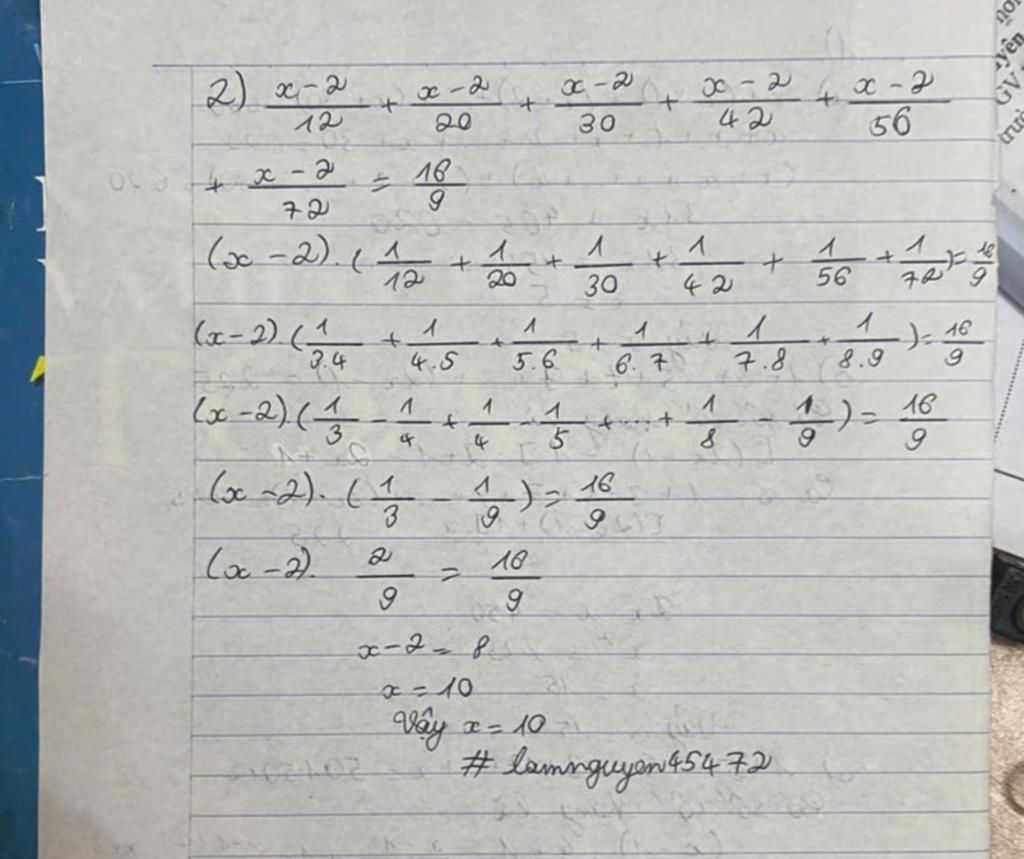 2) (x-2)/12 + (x-2)/20 + (x-2)/30 + (x-2)/42 + (x-2)/56
+ (x-2)/72 = 16/9
(x-2).(1/12 + 1/20 + 1/30 + 1/42 + 1/56 + 1/72) = 16/9
(x-2).(1/3.4 + 1/4.5 + 1/5.6 + 1/6.7 + 1/7.8 + 1/8.9) = 16/9
(x-2).(1/3 - 1/4 + 1/4 - 1/5 + ... + 1/8 - 1/9) = 16/9
(x-2).(1/3 - 1/9) = 16/9
(x-2). 2/9 = 16/9
x-2 = 8
x = 10
Vậy x = 10
# lamnguyen45472
nơi
yên
GV
trườ